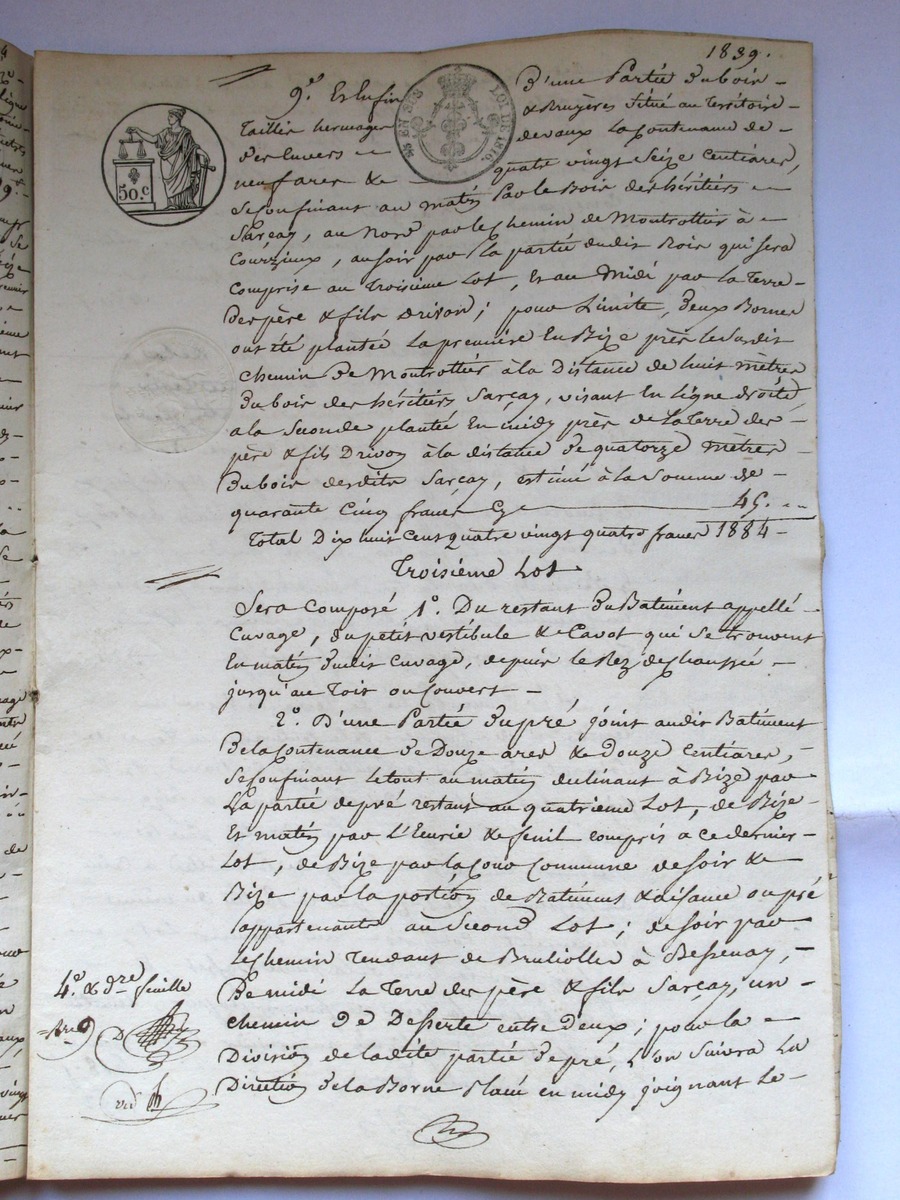 1839.
9.° Et Enfin D'une Partie Du bois
taillis hermages & Bruyères Situé au territoire
des Envers de vaux La Contenance de
neuf ares & quatre vingt Seize Centiares,
Se Confinant au matin Par le Bois des héritiers
Sarçay, au Nord par le Chemin de Montrottier à
Courzieux, au soir par la partie dudit Bois qui sera
Comprise au troisième Lot, Et au Midi par la Terre
Des père & fils Drivon; pour Limite, deux Bornes
ont été plantée La première En Bize près le Susdit
Chemin De Montrottier à la Distance de huit mètres
Du bois des héritiers Sarçay, visant en ligne droite
a la Seconde planté En midy près de La Terre des
père & fils Drivon à la distance de quatorze mètres
Du bois desdits Sarçay, estimé à la Somme de
quarante Cinq francs Cy 45.
Total Dix huit Cent quatre vingt quatre francs 1884
Troisième Lot
Sera Composé 1.° Du restant Du Batiment appellé
Cuvage, du petit vestibule & Cavot qui Se trouvent
En matin dudit Cuvage, depuis le Rez de Chaussée
jusqu'au Toit ou Couvert
2.° D'une Partie Du pré joint audit Batiment
De la Contenance de Douze ares & douze Centiares,
Se Confinant le tout au matin declinant à Bize par
La partie de pré restant au quatrième Lot, de Bize
Et matin par L'Ecurie & fenil compris a ce dernier
Lot, de Bize par la Cour Commune de soir &
Bize par la portion de Batiments & aisance ou pré
appartenants au Second Lot; de soir par
le Chemin Tendant de Brulliolles à Bessenay,
De midi La Terre des père & fils Sarçay, un
chemin De Desserte entre deux; pour la
Division de ladite partie de pré, L'on Suivra La
Direction de la Borne Placé en midy joignant Le
50.C
EN SUS LOI DE 1816.
4.° & d.re feuille